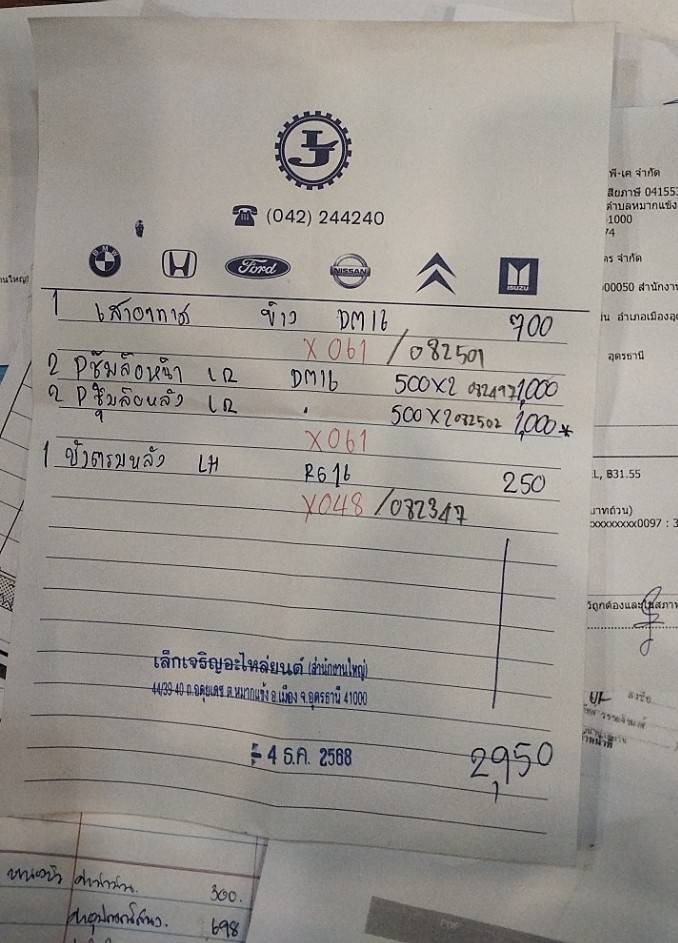 LJ
(042) 244240
BMW H Ford NISSAN ISUZU
1 เสาอากาศ ข้าว DM16 700
X061 / 082501
2 Pซุ้มล้อหน้า LR DM16 500X2 082497 1,000
2 Pซุ้มล้อหลัง LR " 500X2 082502 1,000*
X061
1 หลัง LH RG16 250
X048 / 082347
เล็กเจริญอะไหล่ยนต์ (สำนักงานใหญ่)
44/39-40 ถ.อดุยเดช ต.หมากแข้ง อ.เมือง จ.อุดรธานี 41000
- 4 ธ.ค. 2568
2,950
พี-เค จำกัด
สียภาษี 04155
ตำบลหมากแข้ง
1000
74
คร จำกัด
00050 สำนักงา
อำเภอเมืองอุ
อุดรธานี
L, ฿31.55
บาทถ้วน)
xxxxxxxx0097 : 3
วัถูกต้องและ
300.
698